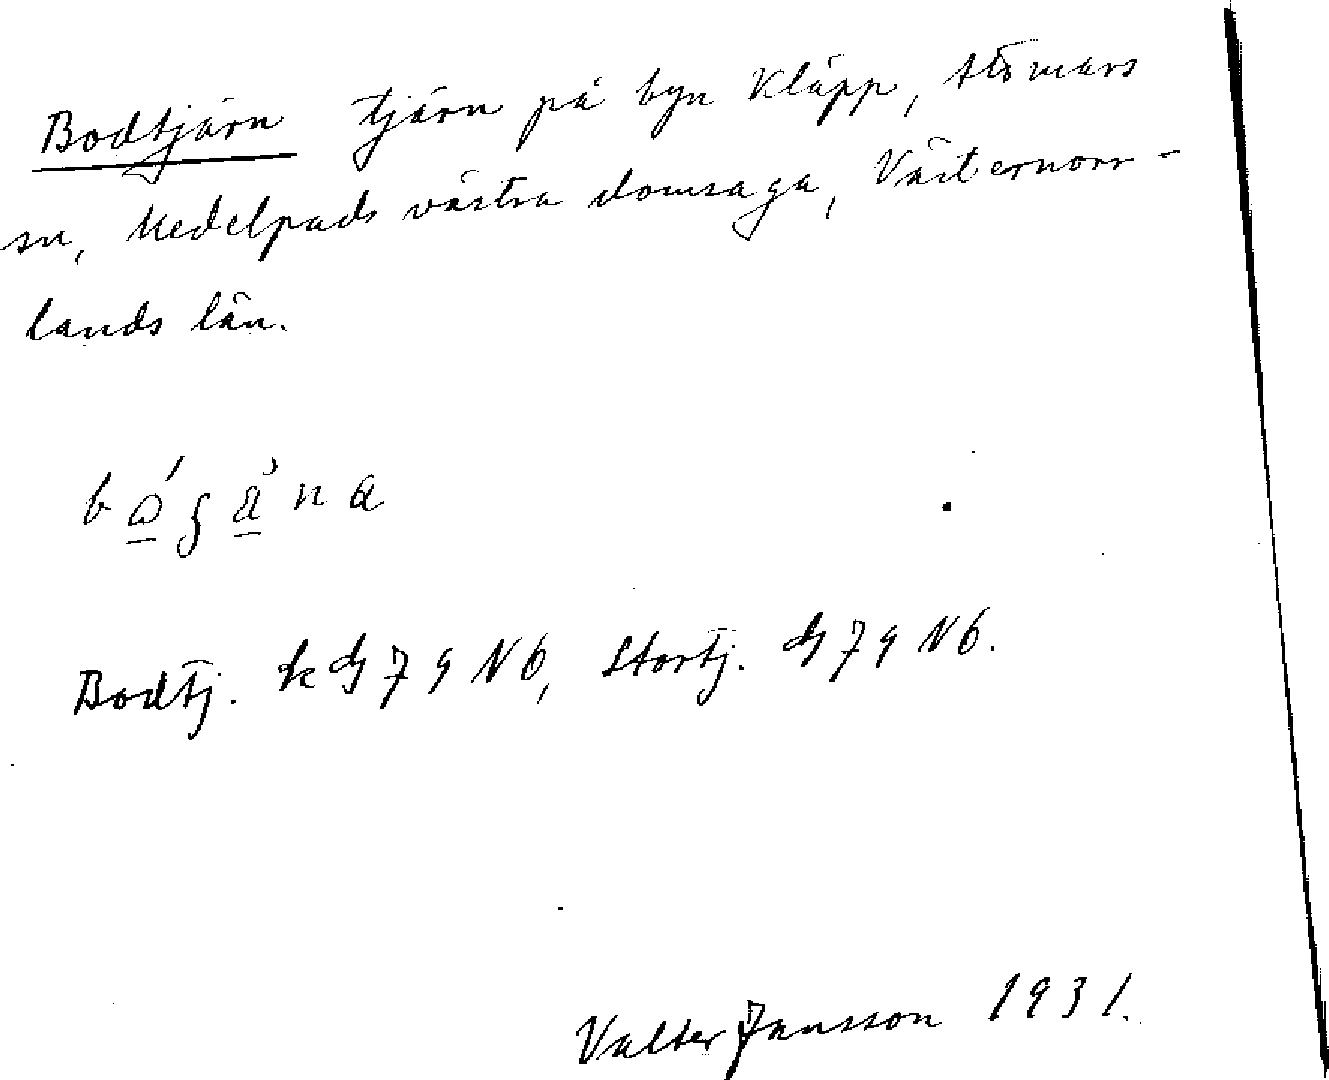 Bodtjärn tjärn på byn Kläpp, Stömars
sn, Medelpads västra domsaga, Västernorr-
lands län.
Bodtj. kG 79 N6, Stortj. G 79 N6.
Valter Jansson 1931.